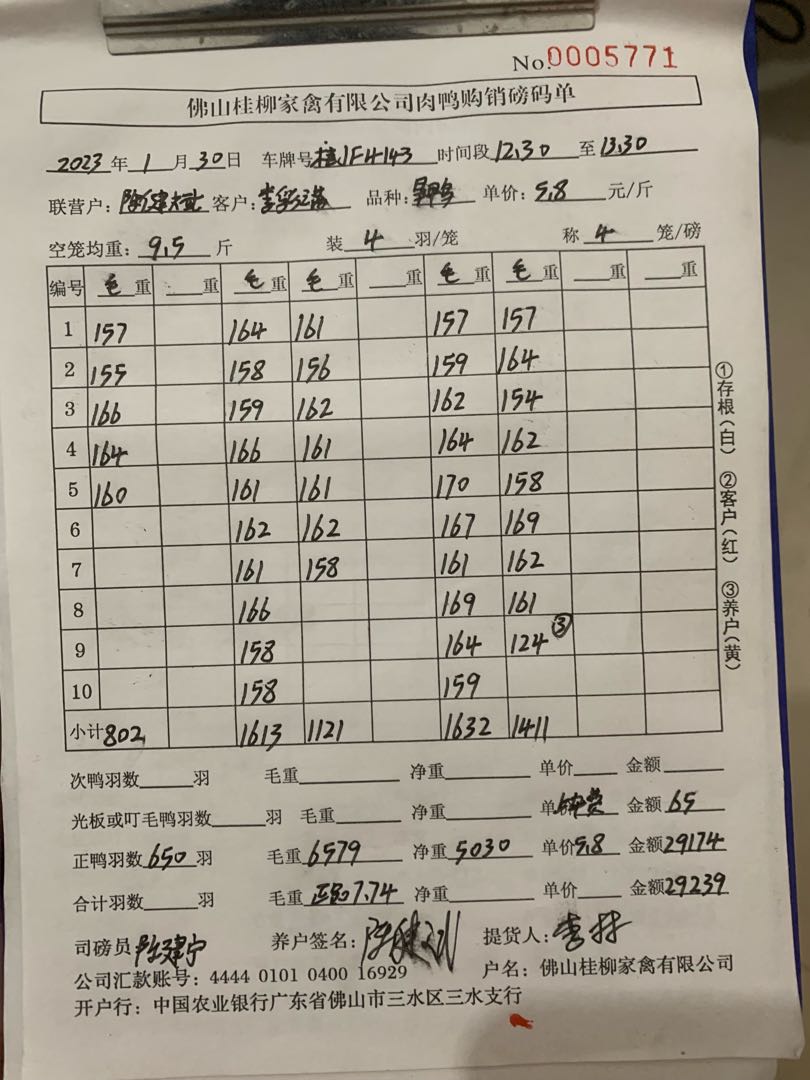 No.0005771
佛山桂柳家禽有限公司肉鸭购销磅码单
2023年1月30日 车牌号 JF4143 时间段12.30至13.30
联营户: 客户: 品种: 单价:5.8元/斤
空笼均重:9.5斤 装4羽/笼 称4笼/磅
编号 毛重 重 毛重 毛重 重 毛重 毛重 重 重
1 157 164 161 157 157
2 155 158 156 159 164
3 166 159 162 162 154
4 164 166 161 164 162
5 160 161 161 170 158
6 162 162 167 169
7 161 158 161 162
8 166 169 161
9 158 164 124 ③
10 158 159
小计 802 1613 1121 1632 1411
次鸭羽数 羽 毛重 净重 单价 金额
光板或叮毛鸭羽数 羽 毛重 净重 单 费 金额65
正鸭羽数650羽 毛重6579 净重5030 单价5.8 金额29174
合计羽数 羽 毛重 7.74 净重 单价 金额29239
司磅员 养户签名: 提货人:
公司汇款账号:4444 0101 0400 16929 户名:佛山桂柳家禽有限公司
开户行:中国农业银行广东省佛山市三水区三水支行
①存根(白) ②客户(红) ③养户(黄)